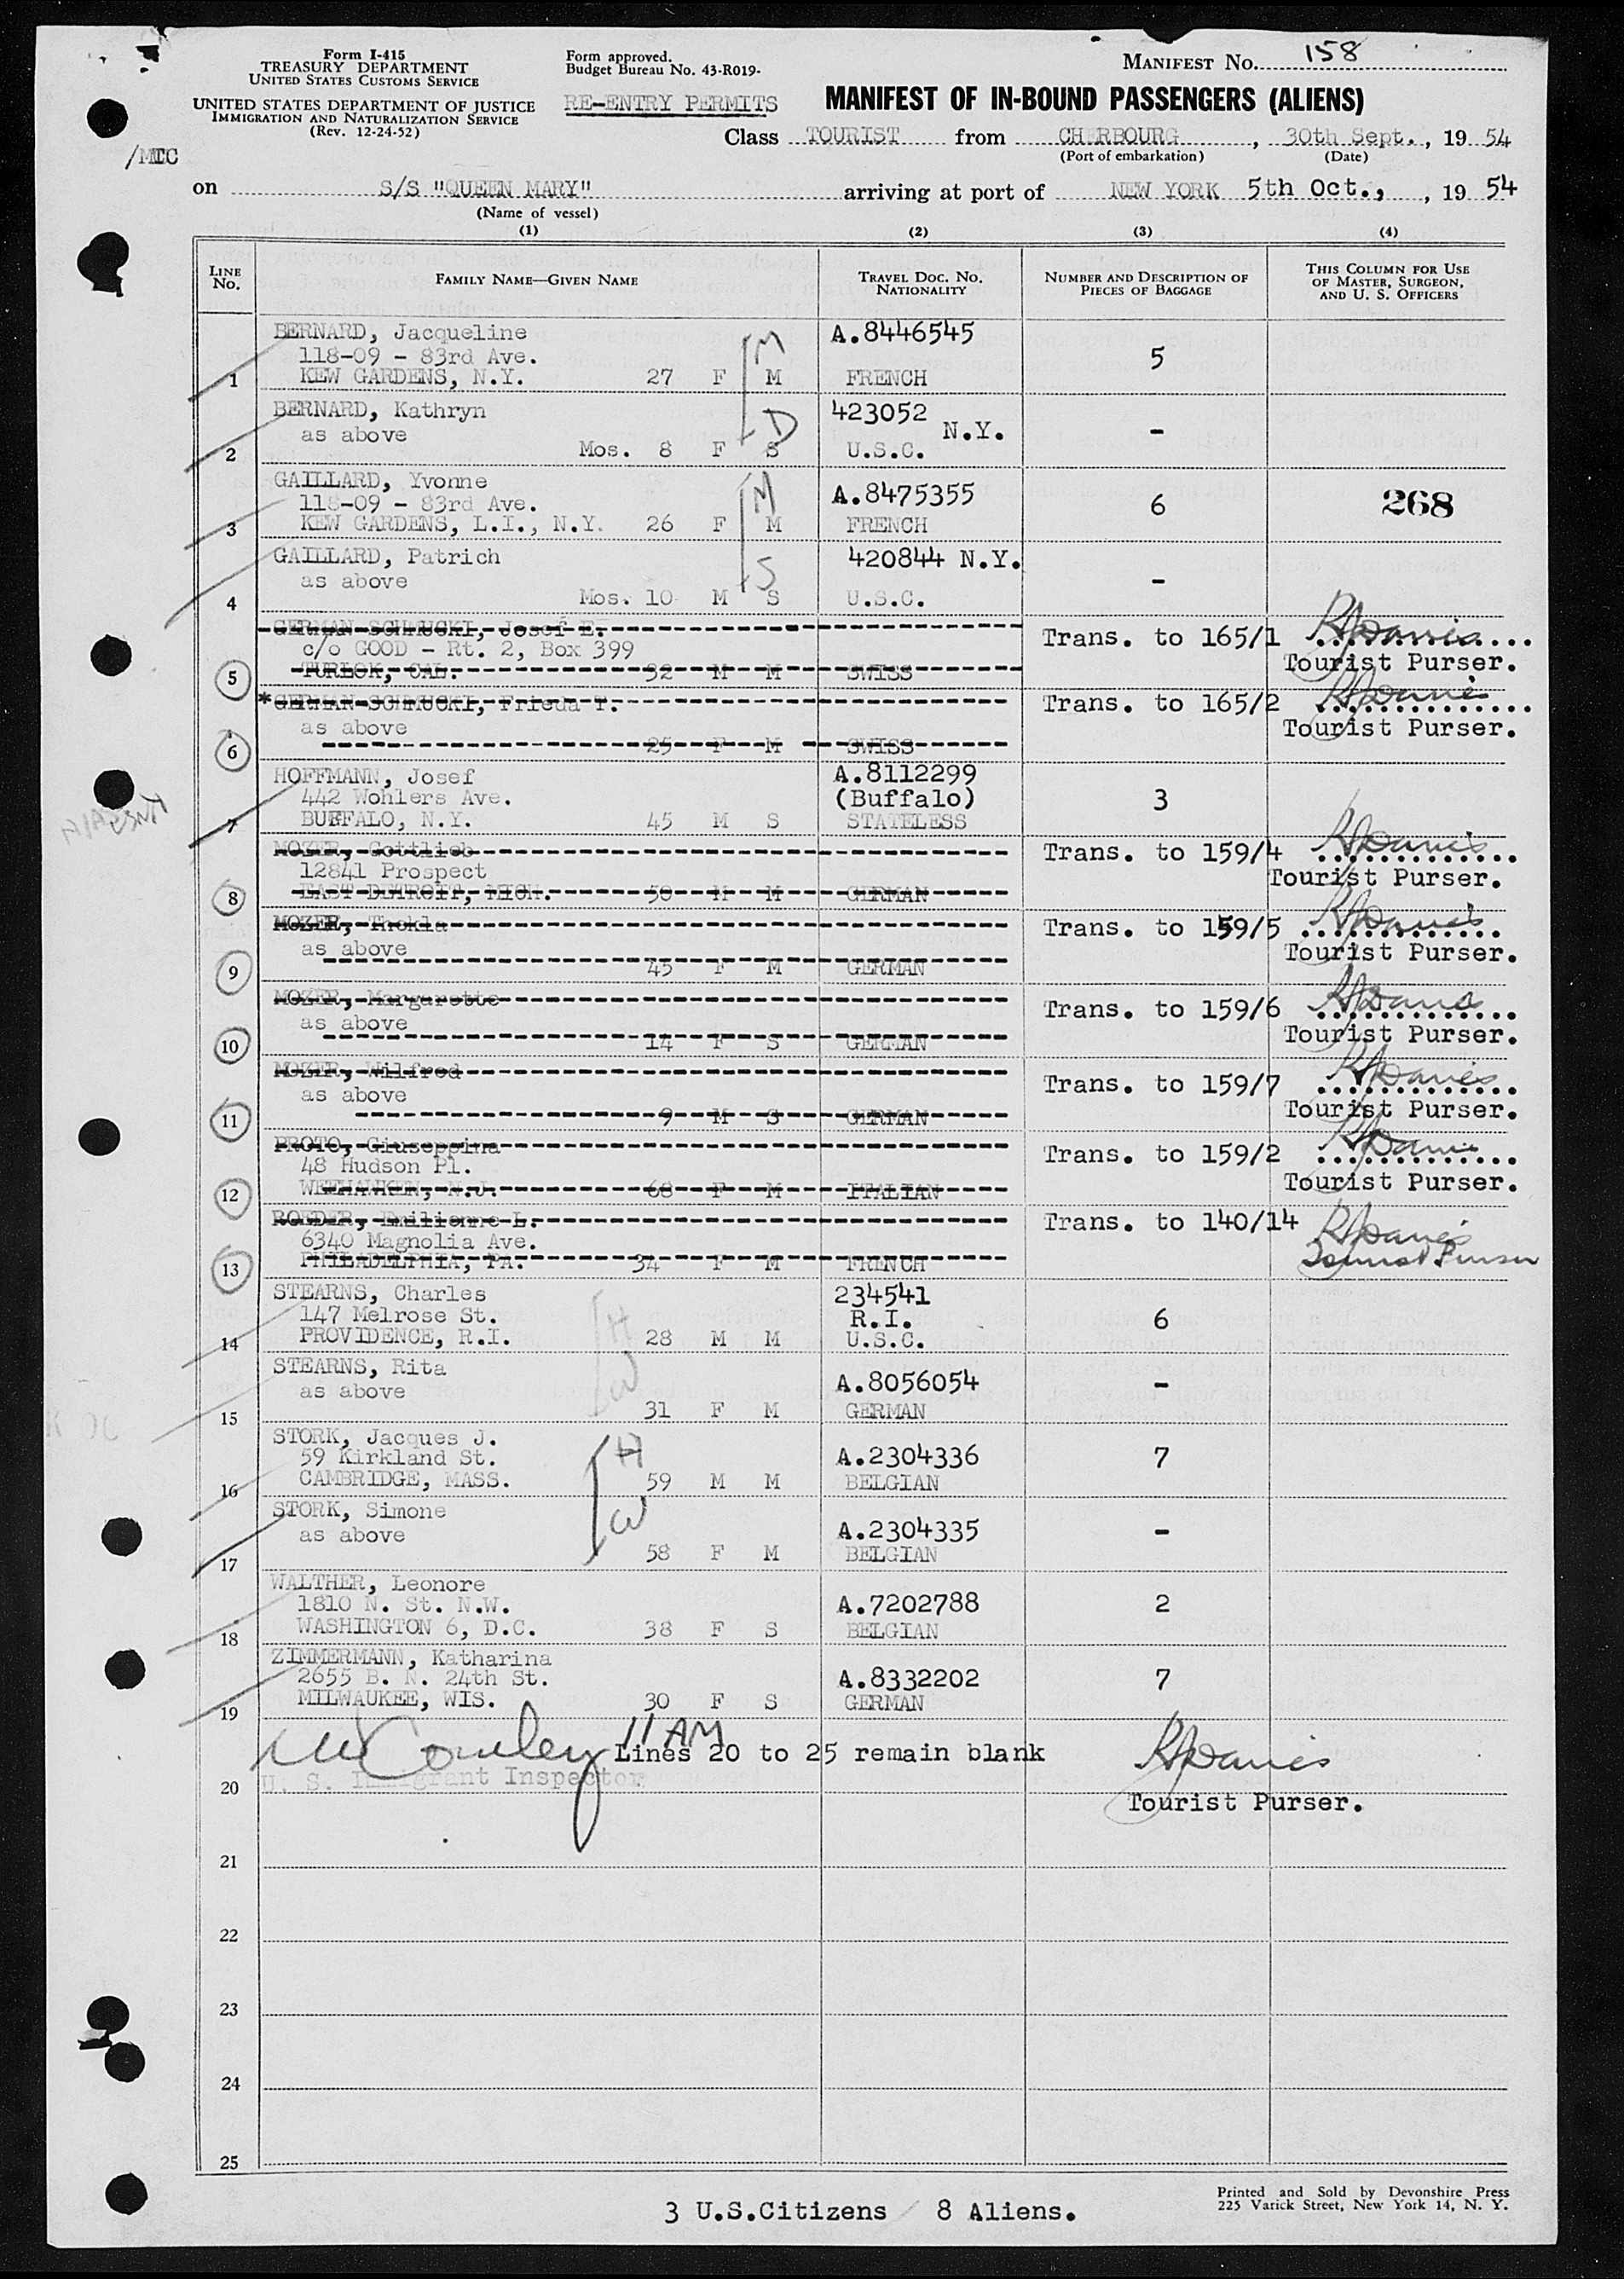 Form I-415
TREASURY DEPARTMENT
UNITED STATES CUSTOMS SERVICE
UNITED STATES DEPARTMENT OF JUSTICE
IMMIGRATION AND NATURALIZATION SERVICE
(Rev. 12-24-52)
Form approved.
Budget Bureau No. 43-R019-
RE-ENTRY PERMITS
MANIFEST NO. 158
MANIFEST OF IN-BOUND PASSENGERS (ALIENS)
Class TOURIST from CHERBOURG, 30th Sept., 19 54
(Port of embarkation) (Date)
on S/S "QUEEN MARY" arriving at port of NEW YORK 5th Oct., , 19 54
(Name of vessel)
(1) (2) (3) (4)
LINE No. FAMILY NAME—GIVEN NAME TRAVEL DOC. NO. NATIONALITY NUMBER AND DESCRIPTION OF PIECES OF BAGGAGE THIS COLUMN FOR USE OF MASTER, SURGEON, AND U. S. OFFICERS
BERNARD, Jacqueline M A.8446545
118-09 - 83rd Ave. 5
1 KEW GARDENS, N.Y. 27 F M FRENCH
BERNARD, Kathryn D 423052
as above N.Y. -
2 Mos. 8 F S U.S.C.
GAILLARD, Yvonne M A.8475355
118-09 - 83rd Ave. 6 268
3 KEW GARDENS, L.I., N.Y. 26 F M FRENCH
GAILLARD, Patrich S 420844 N.Y.
as above -
4 Mos. 10 M S U.S.C.
GERMAN-SCHMUCKI, Josef E. Trans. to 165/1 Davis
c/o GOOD - Rt. 2, Box 399 Tourist Purser.
5 TURLOK, CAL. 32 M M SWISS
*GERMAN-SCHMUCKI, Frieda T. Trans. to 165/2 Davis
as above Tourist Purser.
6 25 F M SWISS
HOFFMANN, Josef A.8112299
442 Wohlers Ave. (Buffalo) 3
7 BUFFALO, N.Y. 45 M S STATELESS
MOZER, Gottlieb Trans. to 159/4 Davis
12841 Prospect Tourist Purser.
8 EAST DETROIT, MICH. 50 M M GERMAN
MOZER, Thekla Trans. to 159/5 Davis
as above Tourist Purser.
9 45 F M GERMAN
MOZER, Margarette Trans. to 159/6 Davis
as above Tourist Purser.
10 14 F S GERMAN
MOZER, Wilfred Trans. to 159/7 Davis
as above Tourist Purser.
11 9 M S GERMAN
PROTO, Giuseppina Trans. to 159/2 Davis
48 Hudson Pl. Tourist Purser.
12 WEEHAWKEN, N.J. 68 F M ITALIAN
ROEDER, Emilienne L. Trans. to 140/14 Davis
6340 Magnolia Ave. Tourist Purser
13 PHILADELPHIA, PA. 34 F M FRENCH
STEARNS, Charles H 234541
147 Melrose St. R.I. 6
14 PROVIDENCE, R.I. 28 M M U.S.C.
STEARNS, Rita W A.8056054 -
as above
15 31 F M GERMAN
STORK, Jacques J. H
59 Kirkland St. A.2304336 7
16 CAMBRIDGE, MASS. 59 M M BELGIAN
STORK, Simone W
as above A.2304335 -
17 58 F M BELGIAN
WALTHER, Leonore
1810 N. St. N.W. A.7202788 2
18 WASHINGTON 6, D.C. 38 F S BELGIAN
ZIMMERMANN, Katharina
2655 B. N. 24th St. A.8332202 7
19 MILWAUKEE, WIS. 30 F S GERMAN
11 AM
Lines 20 to 25 remain blank Davis
20 U. S. Immigrant Inspector Tourist Purser.
21
22
23
24
25
3 U.S.Citizens / 8 Aliens.
Printed and Sold by Devonshire Press
225 Varick Street, New York 14, N. Y.